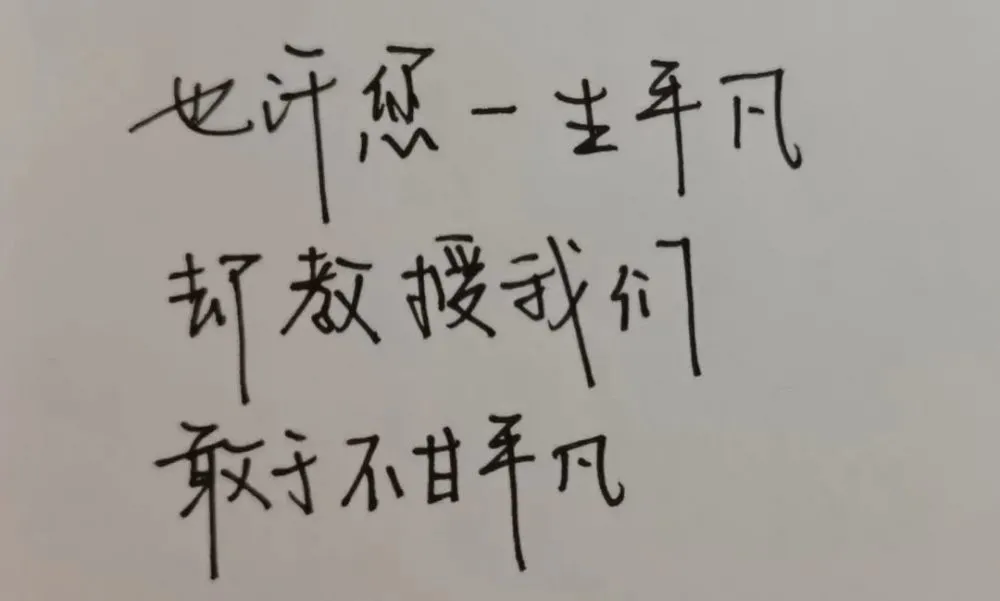 也许您一生平凡
却教授我们
敢于不甘平凡